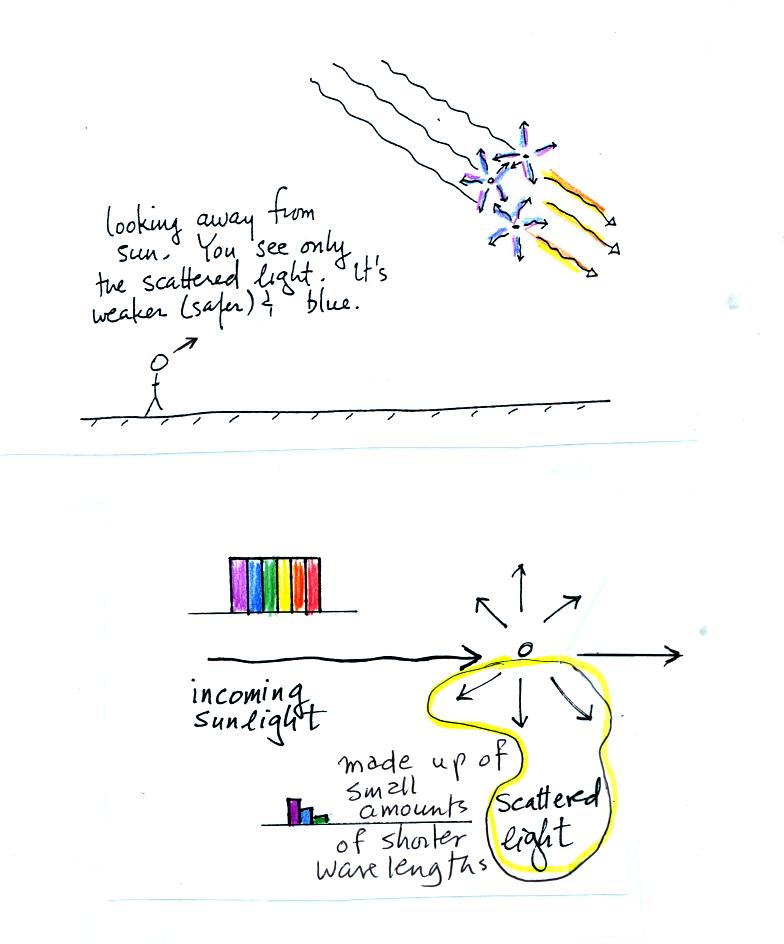 looking away from
sun. You see only
the scattered light. It's
weaker (safer) & blue.
incoming
sunlight
made up of
small
amounts
of shorter
wavelengths
scattered
light